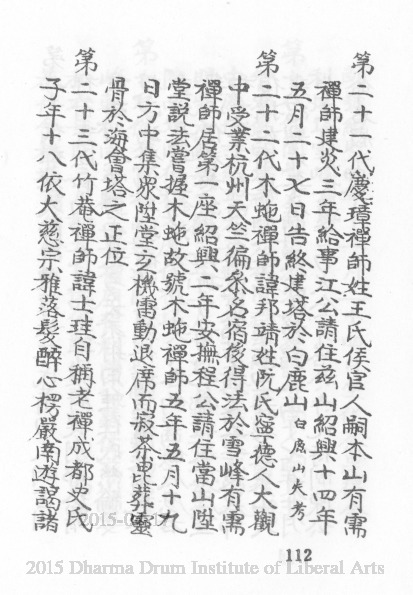 第二十一代慶璋禪師姓王氏侯官人嗣本山有需
禪師建炎三年給事江公請住玆山紹興十四年
五月二十七日告終建塔於白鹿山白鹿山失考
第二十二代木蛇禪師諱邦靖姓阮氏寧德人大觀
中受業杭州天竺偏參名宿後得法於雪峰有需
禪師居第一座紹興二年安撫程公請住當山陞
堂說法嘗握木蛇故號木蛇禪師五年五月十九
日方中集衆陞堂玄機雷動退席而寂茶毘葬靈
骨於海會塔之正位
第二十三代竹菴禪師諱士珪自稱老禪成都史氏
子年十八依大慈宗雅落髮醉心楞嚴南遊謁諸
112
2015 Dharma Drum Institute of Liberal Arts